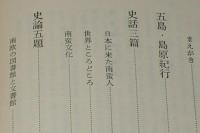 まえがき
五島・島原紀行
史話三篇
日本に来た南蛮人
世界ところどころ
南蛮文化
史論五題
南欧の図書館と文書館